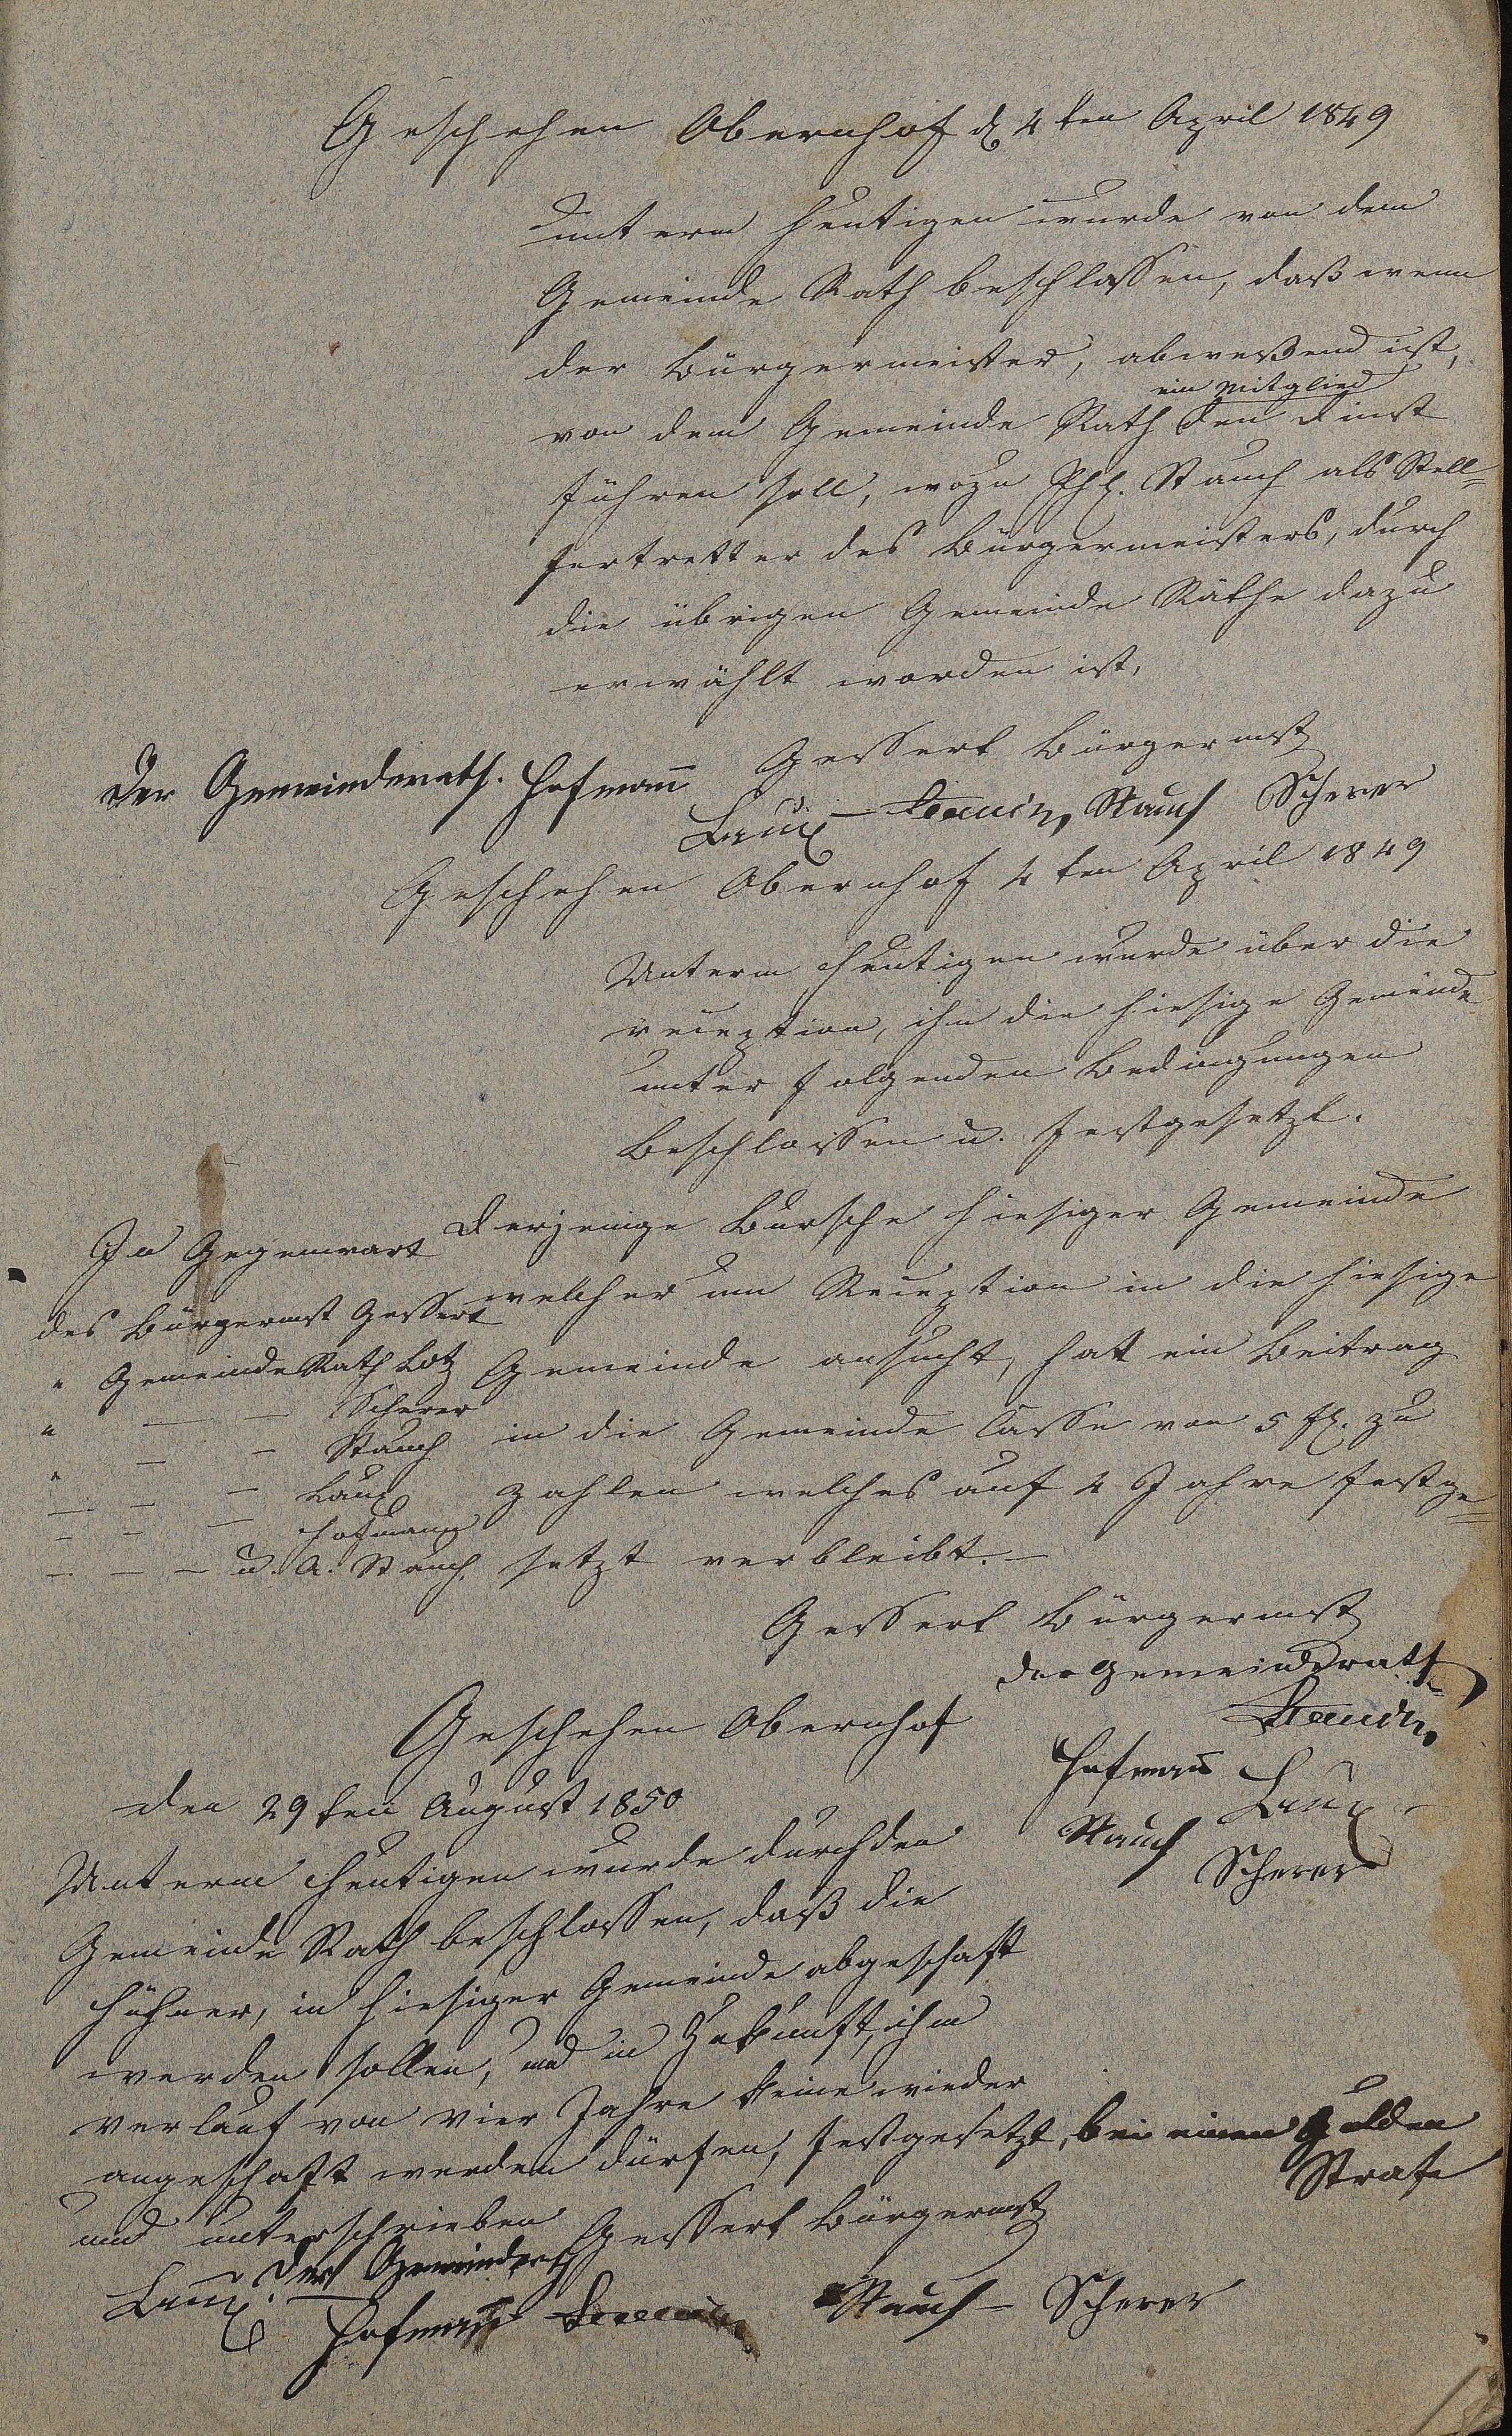 Geschehen Obernhof d 4ten April 1849
unterm heutigen wurde von dem
Gemeinde Rath beschlossen, daß wenn
der Bürgermeister, abweßend ist,
ein Mitglied
von dem Gemeinde Rath den Dinst
führen soll, wozu Phl. Stauch als Stell=
fertretter des Bürgermeisters, durch
die übrigen Gemeinde Räthe dazu
erwählt worden ist,
Gessert Bürgermst
Der Gemeinderath. Hofmann
Laux - Stauch, Stauch Scherer
Geschehen Obernhof 4ten April 1849
Unterm heutigen wurde über die
reception, ihn die hiesige Gemeinde
unter folgenden Bedingungen
beschlossen u. festgesetzt.
In Gegenwart
des Bürgermst Gessert
" Gemeinde Rath Lotz
" — — Scherer
" — — Stauch
— — — Laux
— — — Hofmann
— — — u. A. Stauch
Derjenige Bursche hiesiger Gemeinde
welcher um Reception in die hiesige
Gemeinde ansucht, hat ein Beitrag
in die Gemeinde Casse von 5 fl. zu
zahlen welches auf 4 Jahre festge=
setzt verbleibt. —
Gessert Bürgermst
Der Gemeinderath
Stauch,
Hofmann Laux -
Stauch
Scherer
Geschehen Obernhof
den 29ten August 1850
Unterm heutigen wurde durch den
Gemeinde Rath beschlossen, daß die
Hühner, in hiesiger Gemeinde abgeschaft
werden sollen, und in Zukunft, ihm
verlauf von vier Jahre keine wieder
angeschaft werden dürfen, festgesetzt, bei einen Gulden
Strafe
und unterschrieben
Gessert Bürgermst
Der Gemeinderath
Laux. — Hofmann Stauch Stauch — Scherer